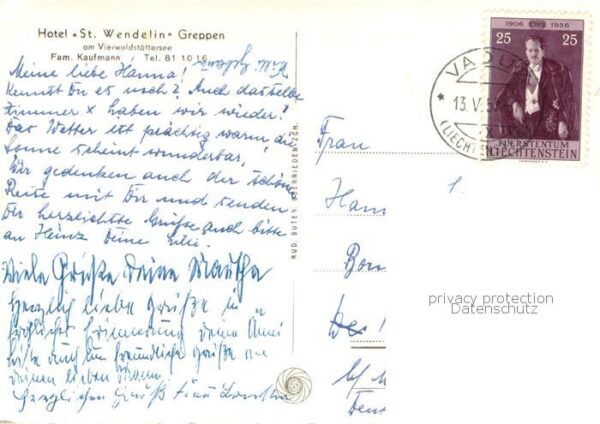 Hotel «St. Wendelin» Greppen
am Vierwaldstättersee
Fam. Kaufmann Tel. 81 10 16
Meine liebe Hanna!
Kennst Du es noch? Auch dasselbe
Zimmer x haben wir wieder!
Das Wetter ist prächtig warm, die
Sonne scheint wunderbar,
Wir gedenken auch der schönen
Reise mit Dir und senden
Dir herzlichste Grüße auch bitte
an Heinz Deine
Viele Grüße Deine Martha
Herzlich liebe Grüße in
Erinnerung Deine
freundliche Grüße an
deinen lieben Mann.
Herzlichen Gruß Frau
RUD. SUTER, OBERRIEDEN-ZCH.
Frau
1906 1956
25 25
FÜRSTENTUM
LIECHTENSTEIN
VADUZ
13. V. 5
(LIECHTEN
privacy protection
Datenschutz